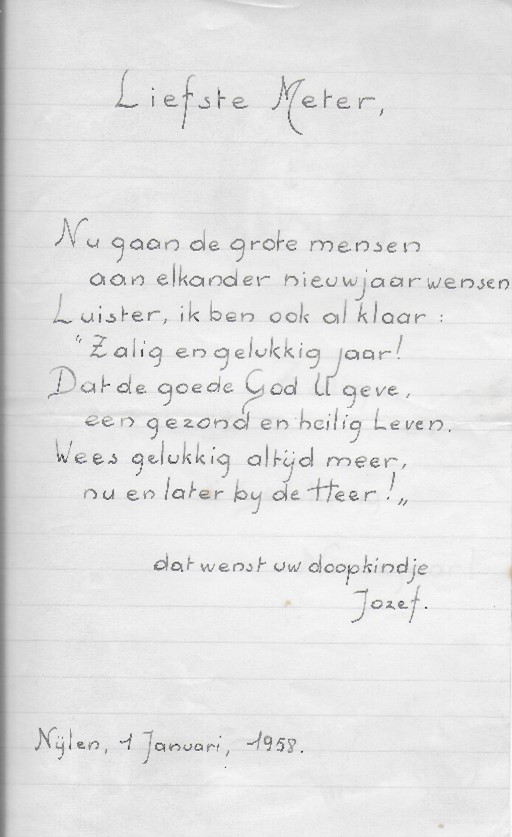 Liefste Meter,
Nu gaan de grote mensen
aan elkander nieuwjaar wensen
Luister, ik ben ook al klaar :
"Zalig en gelukkig jaar!
Dat de goede God U geve,
een gezond en heilig Leven.
Wees gelukkig altijd meer,
nu en later by de Heer!„
dat wenst uw doopkindje
Jozef.
Nijlen, 1 Januari, 1958.